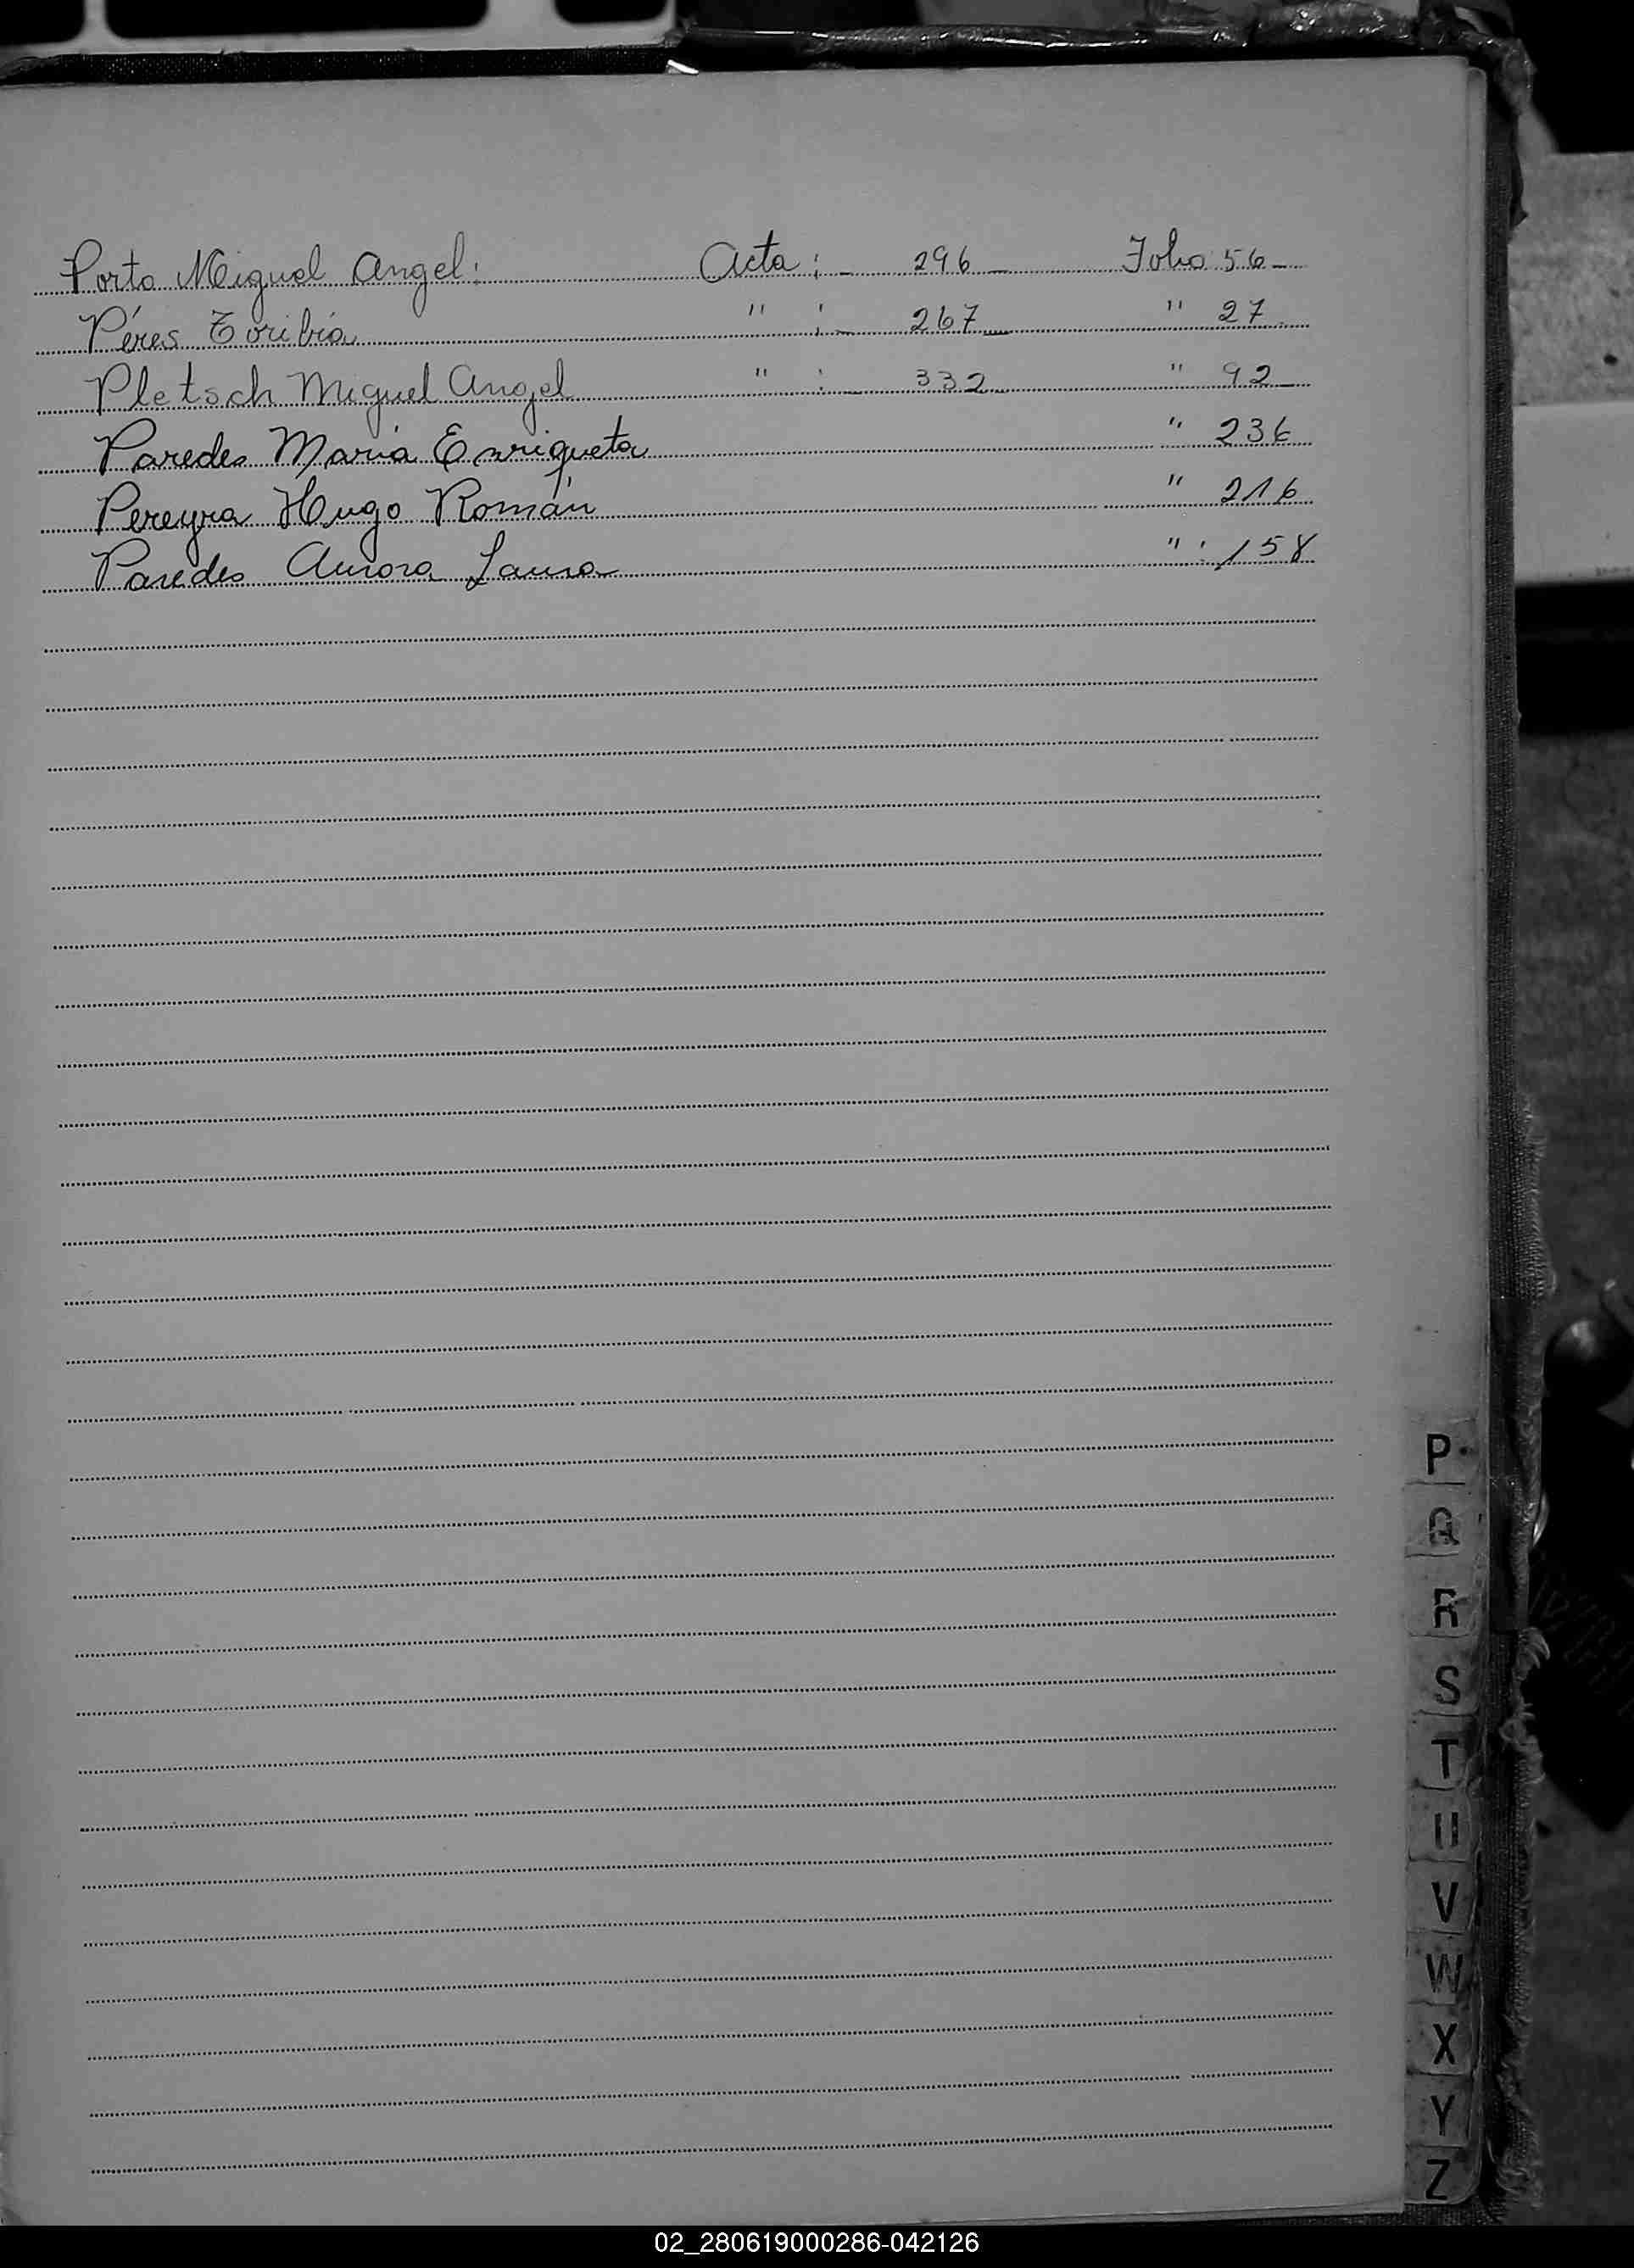 Porto Miguel Angel: Acta: - 296 - Folio 56 -
Péres Toribia " : - 267 " 27
Pletsch Miguel Angel " : - 332 " 92
Paredes Maria Enriqueta " 236
Pereyra Hugo Román " 216
Paredes Aurora Laura " : 158
P
Q
R
S
T
U
V
W
X
Y
Z
02_280619000286-042126